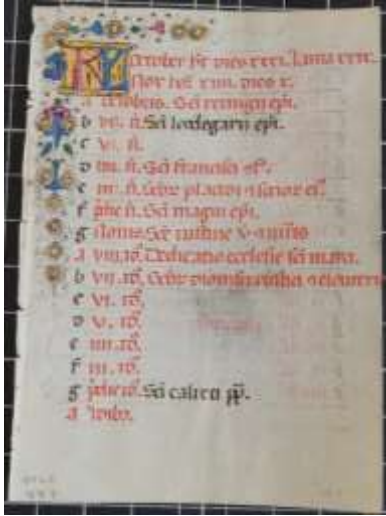 KL October ht dies xxxi. Luna xxix.
Nox ht xiiii. dies x.
a Octobris. Sci remigii epi.
b vi. n. Sci leodegarii epi.
c v. n.
d iiii. n. Sci francisci
e iii. n. placidi socior ei.
f pdie n. Sci magni epi.
g Nonas. Sce iustine v.
a viii. id. Dedicatio ecclesie sci
b vii. id. dionisii
c vi. id.
d v. id.
e iiii. id.
f iii. id.
g pdie id. Sci calixti pp.
a Idus.